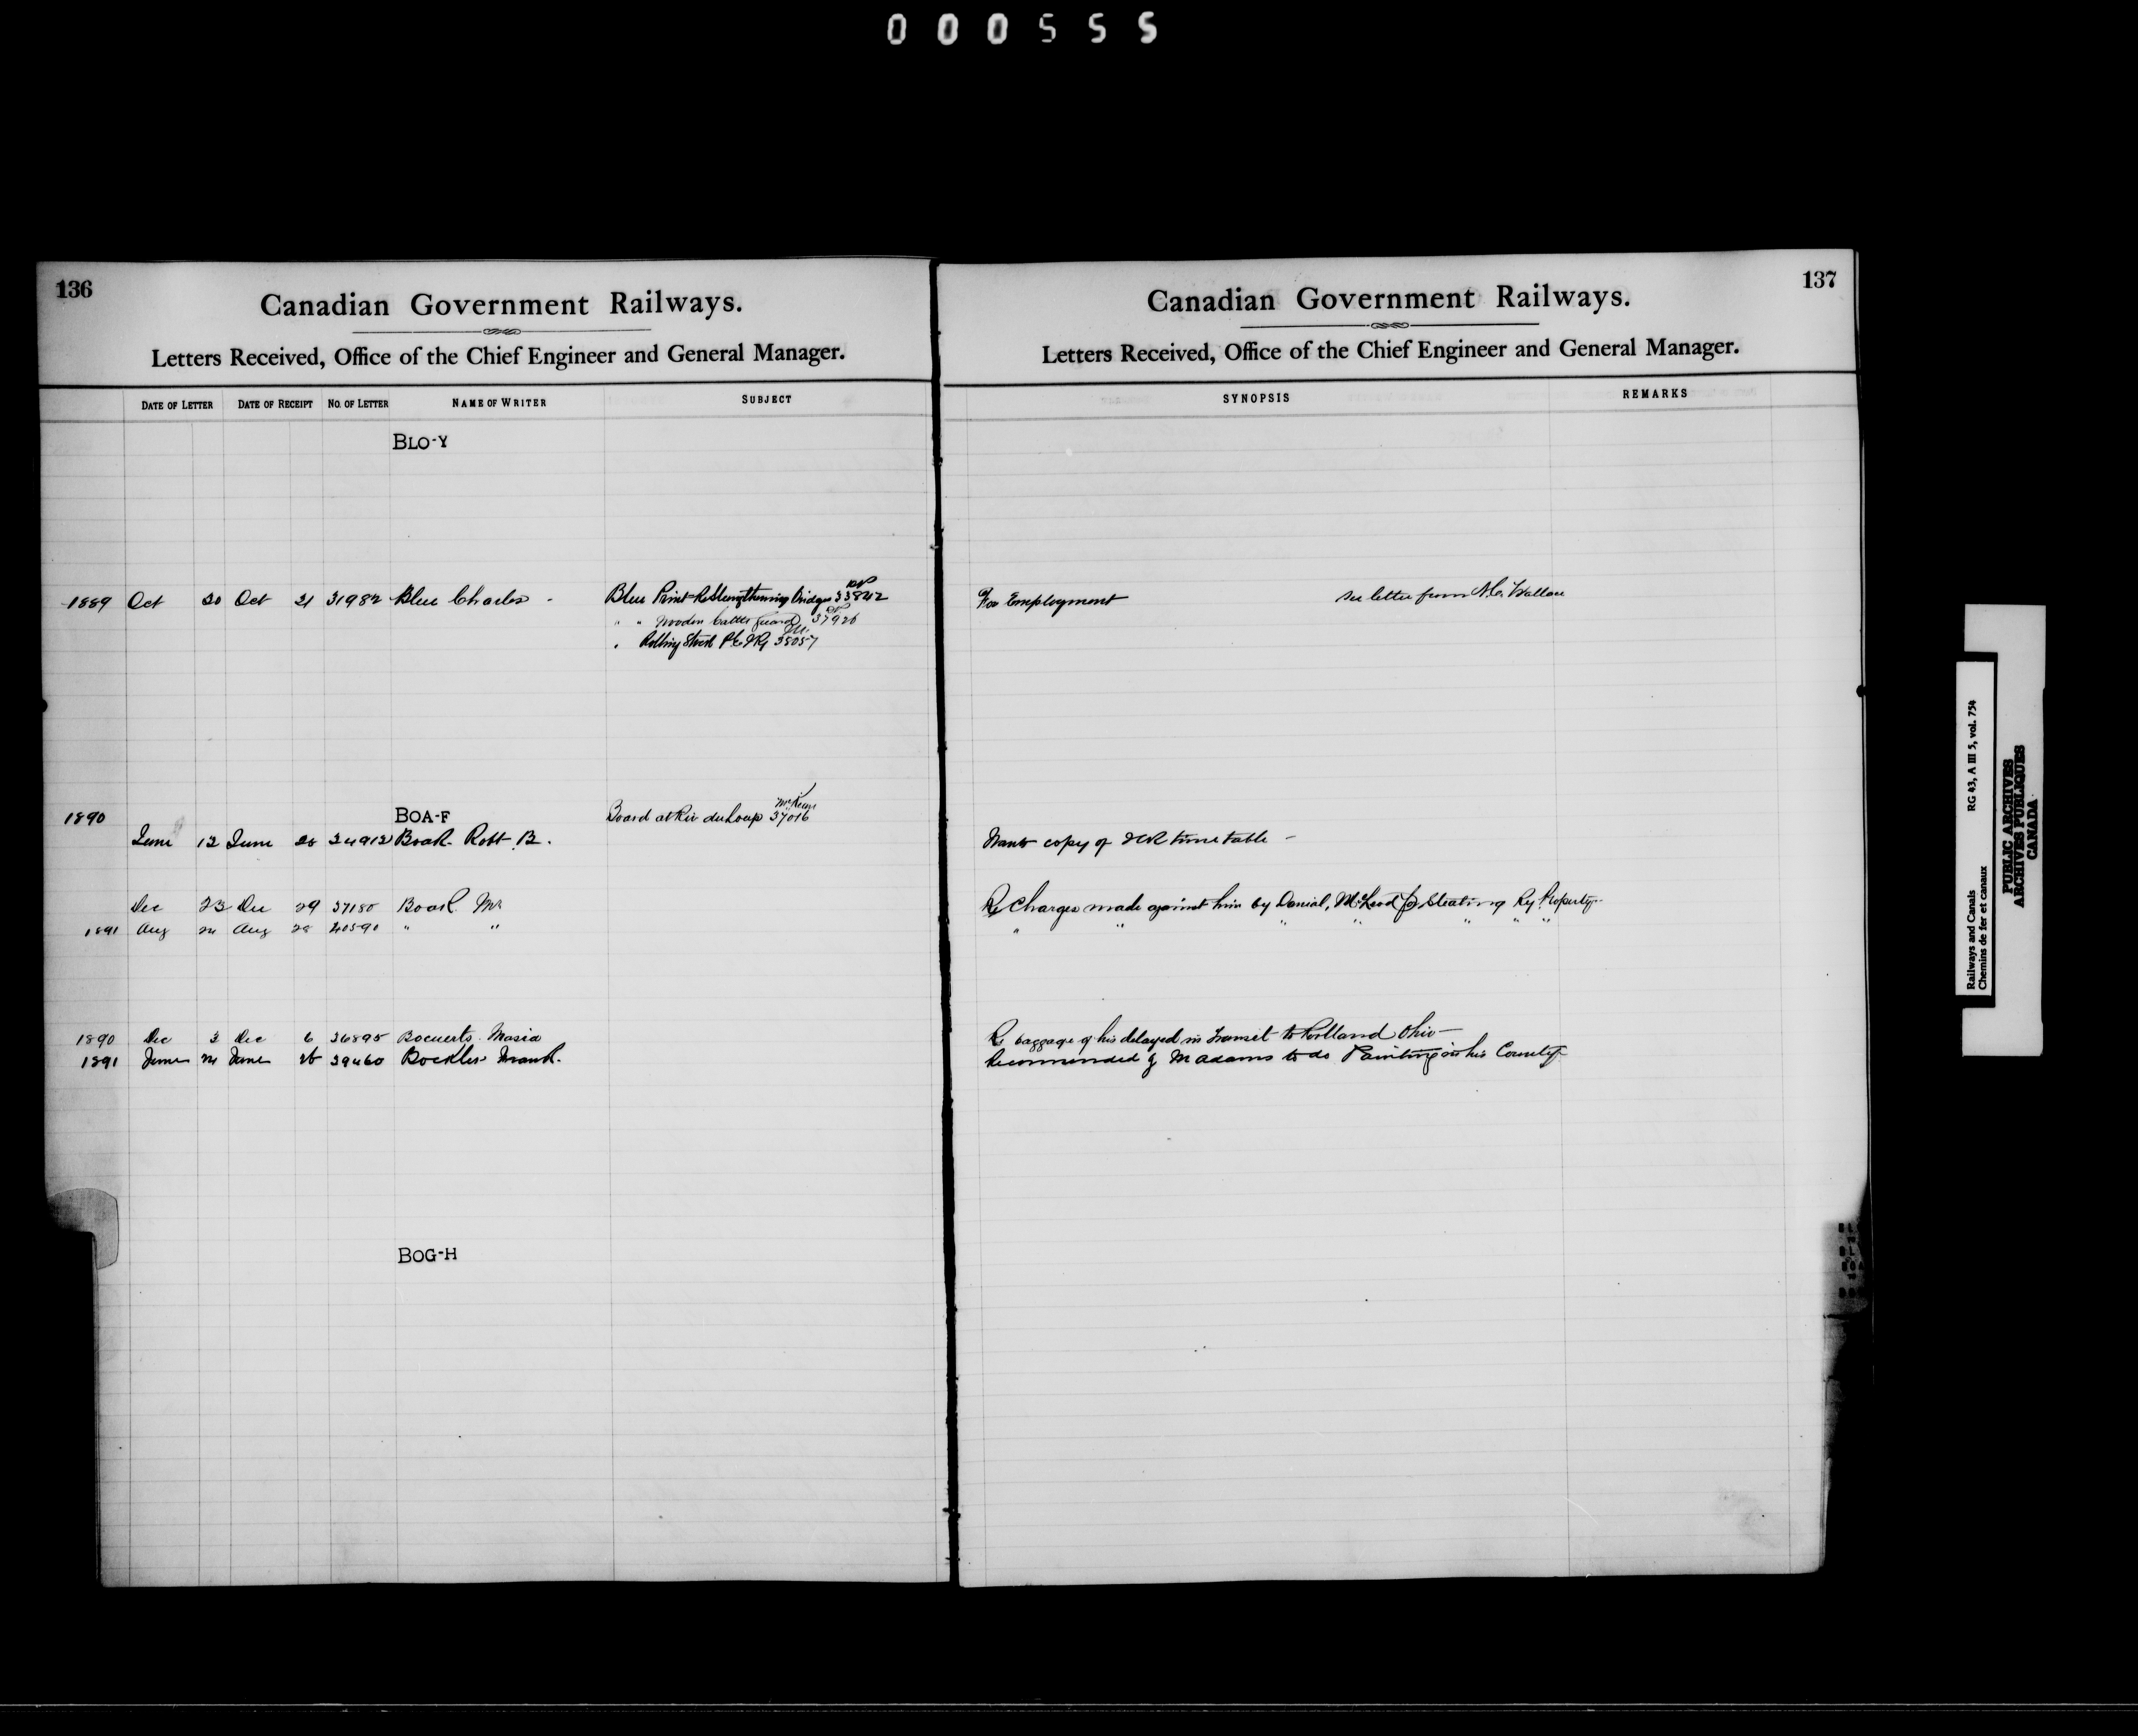 000555
136
Canadian Government Railways.
Letters Received, Office of the Chief Engineer and General Manager.
DATE OF LETTER DATE OF RECEIPT NO. OF LETTER NAME OF WRITER SUBJECT
BLO-Y
1889 Oct 20 Oct 21 31982 Blue Charles - Blue Print Re Strengthening bridges 33842
" " Wooden Cattle guard 37926
" Rolling Stock P.E.I.Ry 38057
1890 BOA-F Board at Riv du Loup 37016
June 12 June 20 34912 Boak Robt B.
Dec 23 Dec 29 37180 Boak Mr
1891 Aug 24 Aug 28 40590 " "
1890 Dec 3 Dec 6 36895 Bocuerts Maria
1891 June 24 June 26 39460 Bockler Frank.
BOG-H
137
Canadian Government Railways.
Letters Received, Office of the Chief Engineer and General Manager.
SYNOPSIS REMARKS
For Employment see letter from N.C. Wallace
Wants copy of ICR time table -
Re Charges made against him by Danial, McLeod for Stealing Ry. Property
" " " " " " "
Re baggage of his delayed in Transit to Portland Ohio
Recommended by M Adams to do Painting in his County
Railways and Canals RG 43, A III 5, vol. 754
Chemins de fer et canaux
PUBLIC ARCHIVES
ARCHIVES PUBLIQUES
CANADA